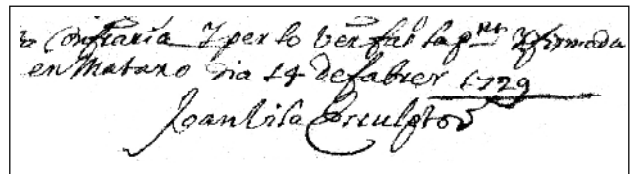 Confraria y per lo ver fas la pnt y firmada
en Mataro dia 14 de fabrer 1729
Joan Vila Esculptor